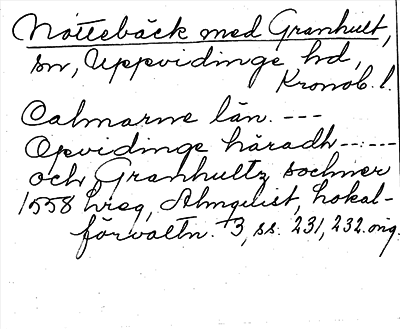 Nottebäck med Granhult,
sn, Uppvidinge hd,
Kronob. l.
Calmarne län. ---
Opvidinge häradh -----
och Granhultz sochner
1558 hreg, Almquist, Lokal-
förvaltn. 3, ss. 231, 232. orig.